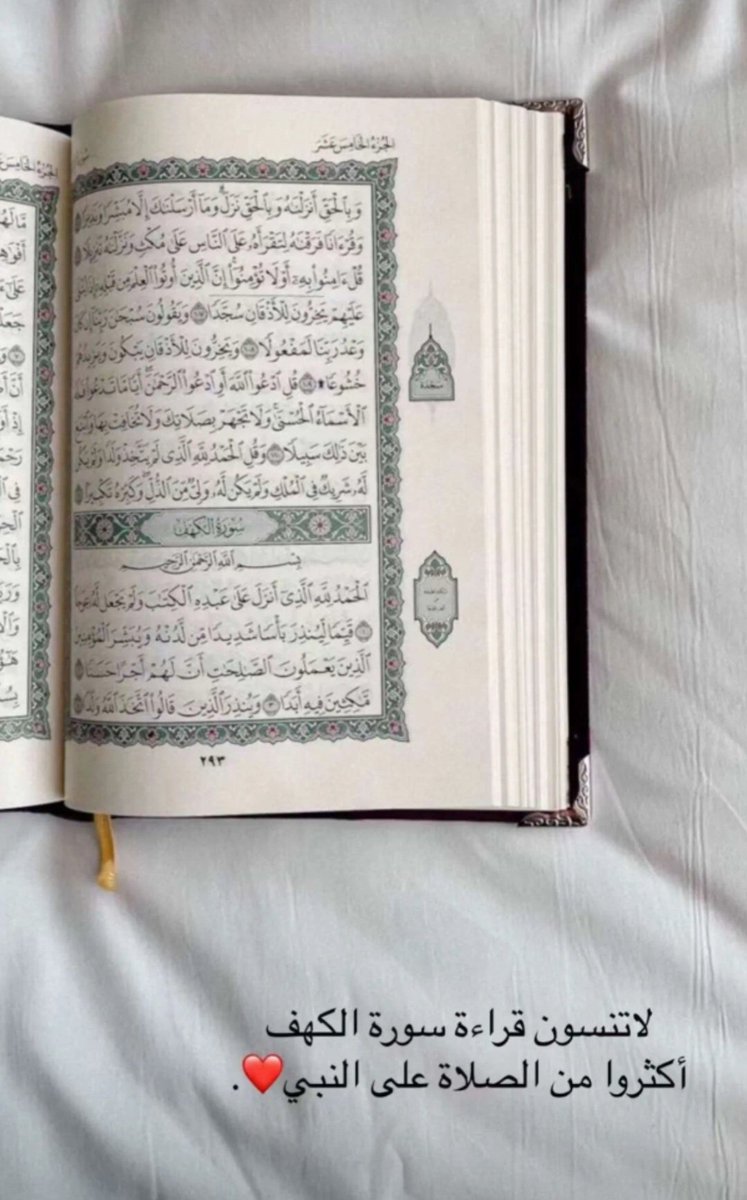 الجزء الخامس عشر
وَبِالْحَقِّ أَنزَلْنَٰهُ وَبِالْحَقِّ نَزَلَ وَمَا أَرْسَلْنَٰكَ إِلَّا مُبَشِّرًا وَنَذِيرًا
وَقُرْءَانًا فَرَقْنَٰهُ لِتَقْرَأَهُ عَلَى النَّاسِ عَلَىٰ مُكْثٍ وَنَزَّلْنَٰهُ تَنزِيلًا
قُلْ ءَامِنُوا بِهِ أَوْ لَا تُؤْمِنُوا إِنَّ الَّذِينَ أُوتُوا الْعِلْمَ مِن قَبْلِهِ إِذَا يُتْلَىٰ
عَلَيْهِمْ يَخِرُّونَ لِلْأَذْقَانِ سُجَّدًا ١٠٧ وَيَقُولُونَ سُبْحَٰنَ رَبِّنَا إِن كَانَ
وَعْدُ رَبِّنَا لَمَفْعُولًا ١٠٨ وَيَخِرُّونَ لِلْأَذْقَانِ يَبْكُونَ وَيَزِيدُهُمْ
خُشُوعًا ۩ ١٠٩ قُلِ ادْعُوا اللَّهَ أَوِ ادْعُوا الرَّحْمَٰنَ أَيًّا مَّا تَدْعُوا فَلَهُ
الْأَسْمَاءُ الْحُسْنَىٰ وَلَا تَجْهَرْ بِصَلَاتِكَ وَلَا تُخَافِتْ بِهَا وَابْتَغِ
بَيْنَ ذَٰلِكَ سَبِيلًا ١١٠ وَقُلِ الْحَمْدُ لِلَّهِ الَّذِي لَمْ يَتَّخِذْ وَلَدًا وَلَمْ يَكُن
لَّهُ شَرِيكٌ فِي الْمُلْكِ وَلَمْ يَكُن لَّهُ وَلِيٌّ مِّنَ الذُّلِّ وَكَبِّرْهُ تَكْبِيرًا
سجدة
سُورَةُ الكَهْفِ
بِسْمِ اللَّهِ الرَّحْمَٰنِ الرَّحِيمِ
الْحَمْدُ لِلَّهِ الَّذِي أَنزَلَ عَلَىٰ عَبْدِهِ الْكِتَٰبَ وَلَمْ يَجْعَل لَّهُ عِوَجَا
١ قَيِّمًا لِّيُنذِرَ بَأْسًا شَدِيدًا مِّن لَّدُنْهُ وَيُبَشِّرَ الْمُؤْمِنِينَ
الَّذِينَ يَعْمَلُونَ الصَّٰلِحَٰتِ أَنَّ لَهُمْ أَجْرًا حَسَنًا
مَّٰكِثِينَ فِيهِ أَبَدًا ٣ وَيُنذِرَ الَّذِينَ قَالُوا اتَّخَذَ اللَّهُ وَلَدًا
٢٩٣
لاتنسون قراءة سورة الكهف
أكثروا من الصلاة على النبي❤️.